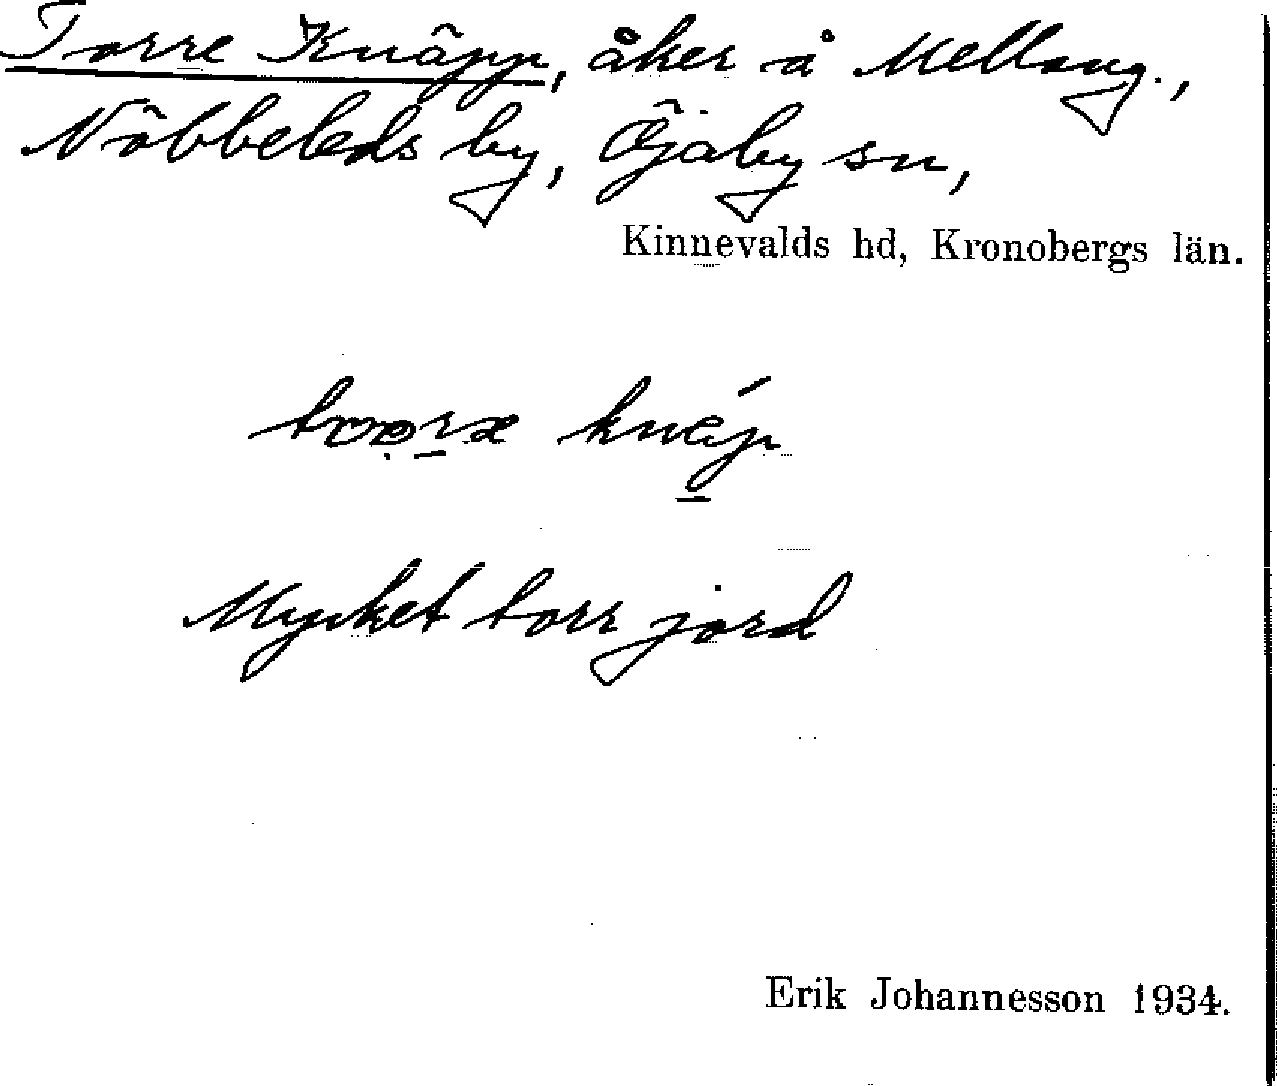 Torre Knäpp, åker å Mellang.,
Nöbbeleds by, Öjaby sn,
Kinnevalds hd, Kronobergs län.
Mycket torr jord
Erik Johannesson 1934.